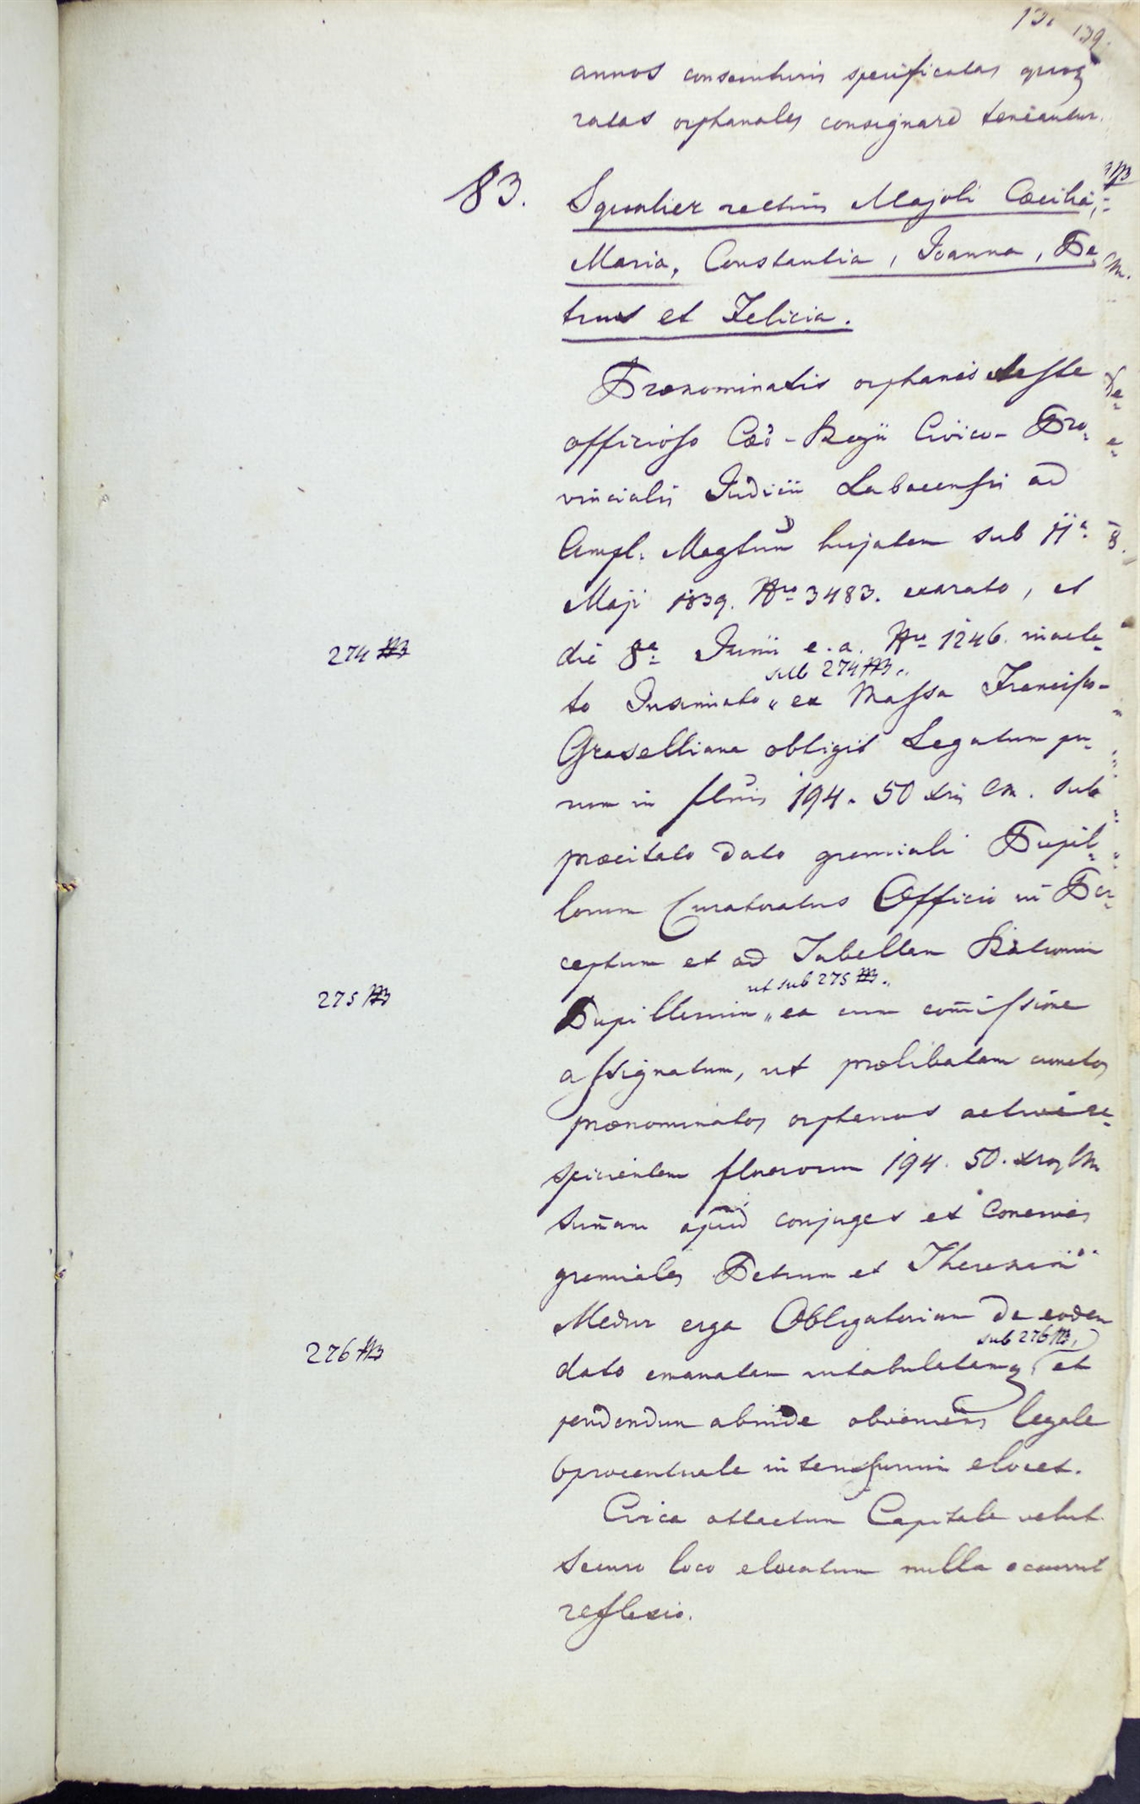 139.
annos conscientiosius specificatas quoq
ratas orphanales consignare teneantur.
83. Squalier rectius Majoli Cæcilia,
Maria, Constantia, Joanna, Pe
trus et Felicia.
Prænominatis orphanis teste
officioso Cæo-Regii Civico-Pro-
vincialis Judicii Labacensis ad
Ampl. Mag̃tum hujatem sub 11a
Maji 1839. Nro 3483. exarato, et
274 die 8ae Junii e. a. Nro 1246. inacta-
sub 274
to Insinuato „ ex Massa Francisco-
Graselliana obligit Legatum pu-
rum in flnis 194. 50 xris CM. sub
præcitato dato gremiali Pupil-
lorum Curatoratus Officio in Per-
ceptum et ad Tabellam Ratiomin
ut sub 275
275 Pupillarium „ ea cum com̃issione
assignatum, ut prælibatam cunctos
prænominatos orphanos active re-
spicientem flnorum 194. 50. xrq CM
sum̃am apud conjuges et Concives
gremiales Petrum et Theresiam
Medur erga Obligatoriam de eodem
sub 276
276 dato emanatam intabulatamq et
pendendum abinde obveniens legale
6procentuale in tersusurium elocet.
Circa attactum Capitale velut
securo loco elocatum nulla occurrit
reflexio.